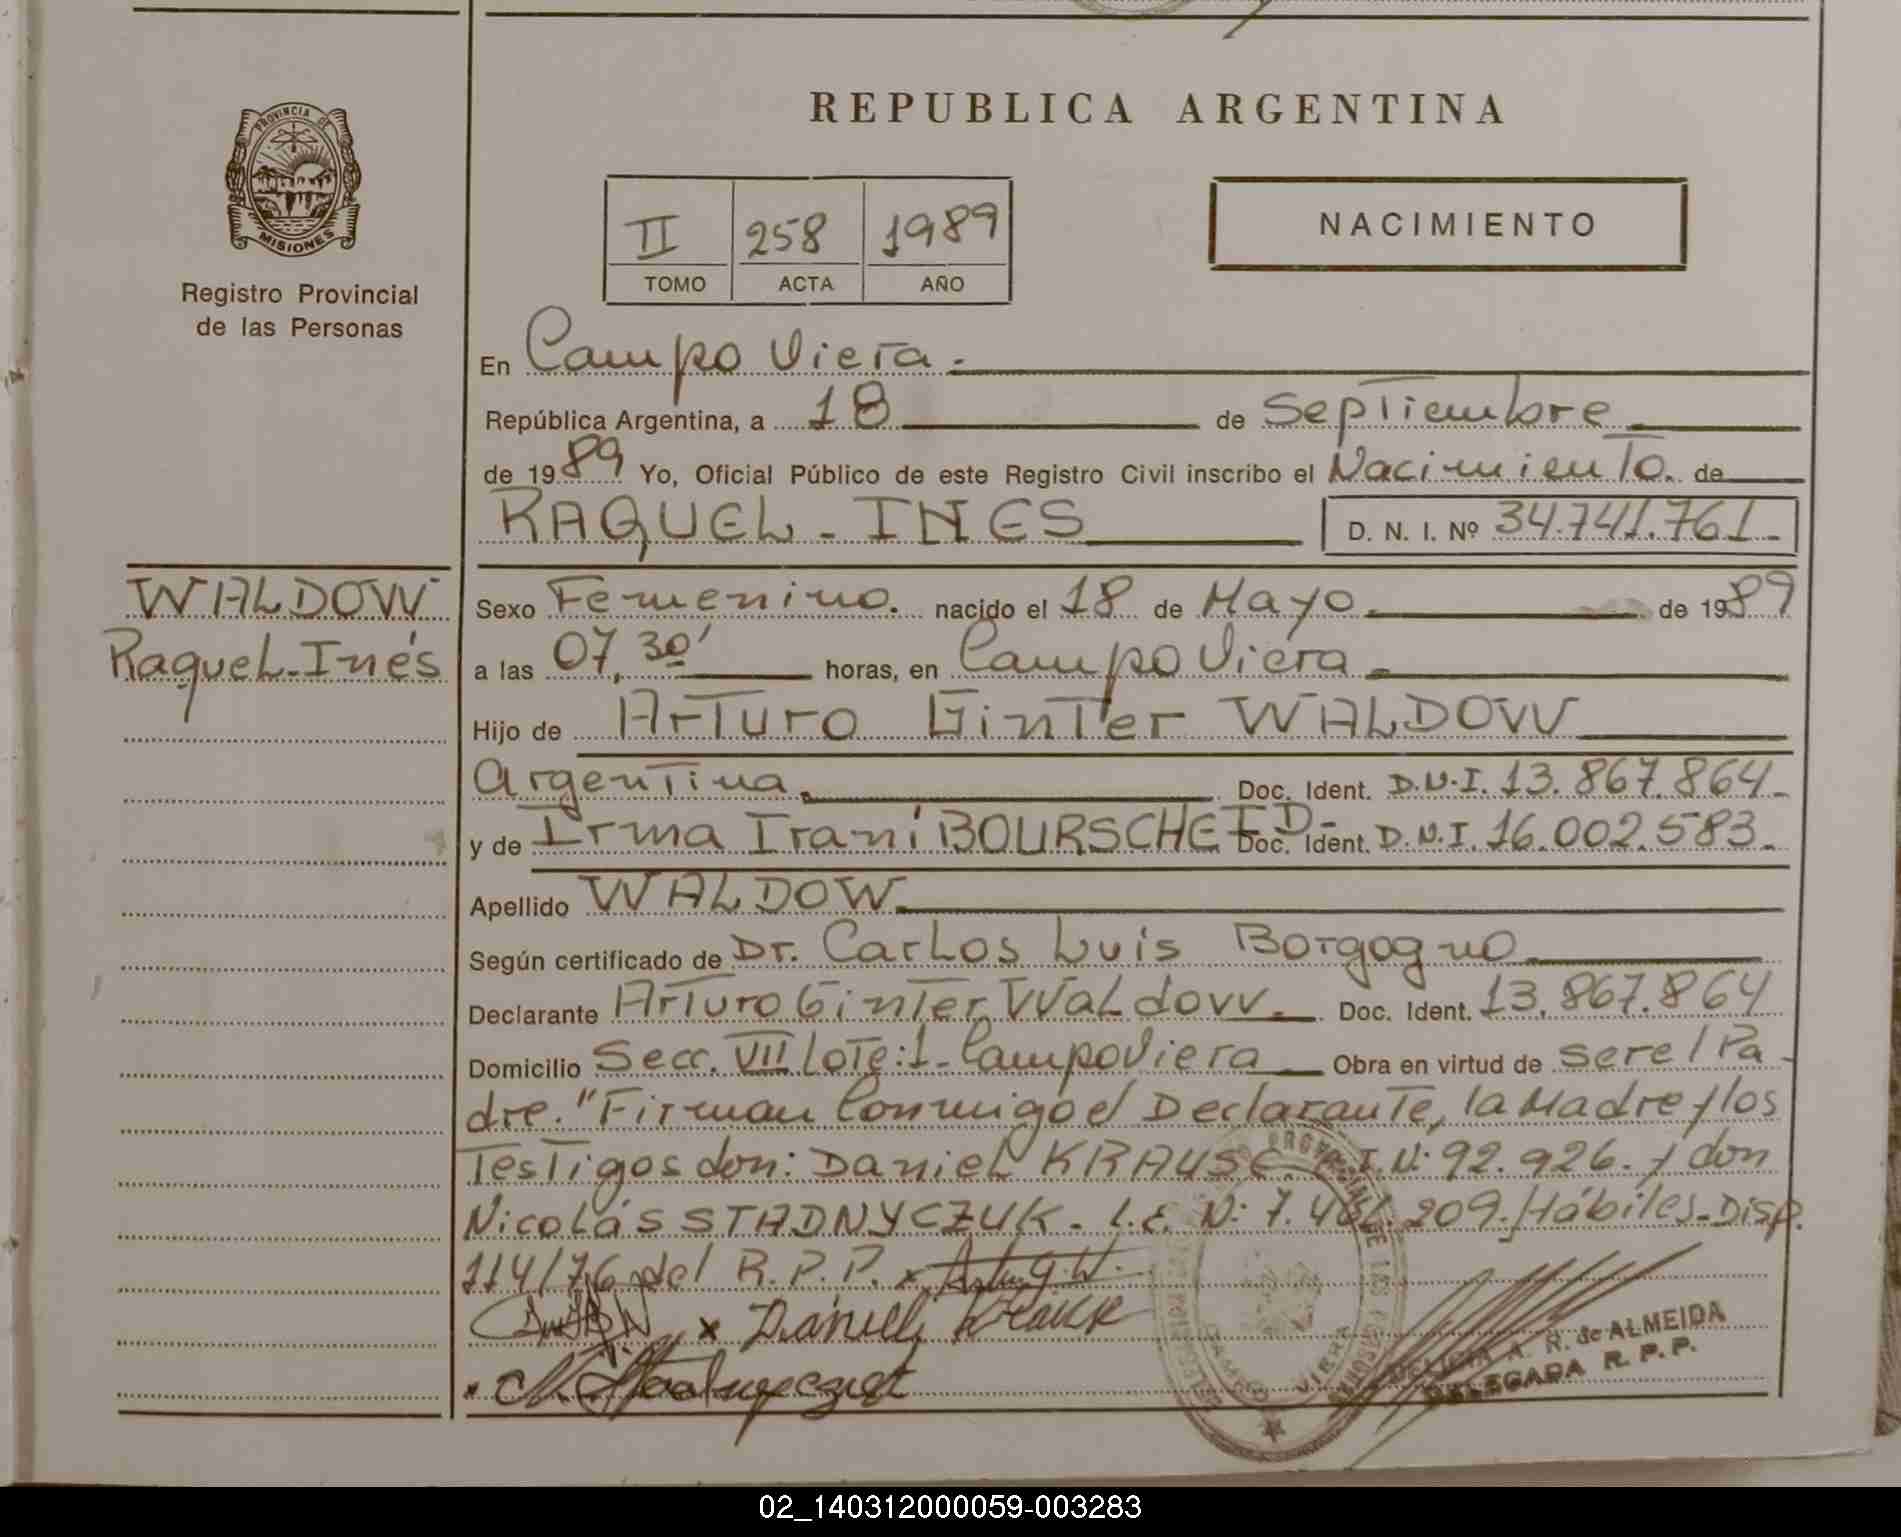 REPUBLICA ARGENTINA
PROVINCIA DE
MISIONES
Registro Provincial
de las Personas
II 258 1989
TOMO ACTA AÑO
NACIMIENTO
En Campo Viera.
República Argentina, a 18 de Septiembre
de 1989 Yo, Oficial Público de este Registro Civil inscribo el Nacimiento. de
RAQUEL - INES D. N. I. Nº 34.741.761.-
WALDOW
Raquel-Inés
Sexo Femenino. nacido el 18 de Mayo. de 1989
a las 07,30' horas, en Campo Viera.
Hijo de Arturo Ginter WALDOW
Argentina. Doc. Ident. D.N.I. 13.867.864.-
y de Irma Irani BOURSCHEID.- Doc. Ident. D.N.I. 16.002.583.-
Apellido WALDOW
Según certificado de Dr. Carlos Luis Borgogno
Declarante Arturo Ginter Waldow. Doc. Ident. 13.867.864
Domicilio Secc. VII Lote:1- Campo Viera Obra en virtud de ser el Pa-
dre. "Firman Conmigo el Declarante, la Madre y los
Testigos don: Daniel KRAUSE. I.N: 92.926. y don
Nicolás STADNYCZUK - L.E. N: 7. 209. Hábiles-Disp.
114/76 del R.P.P. x Arturo G.W.
x Daniel Krause
DELICIA A. R. de ALMEIDA
DELEGADA R. P. P.
CAMPO VIERA
02_140312000059-003283